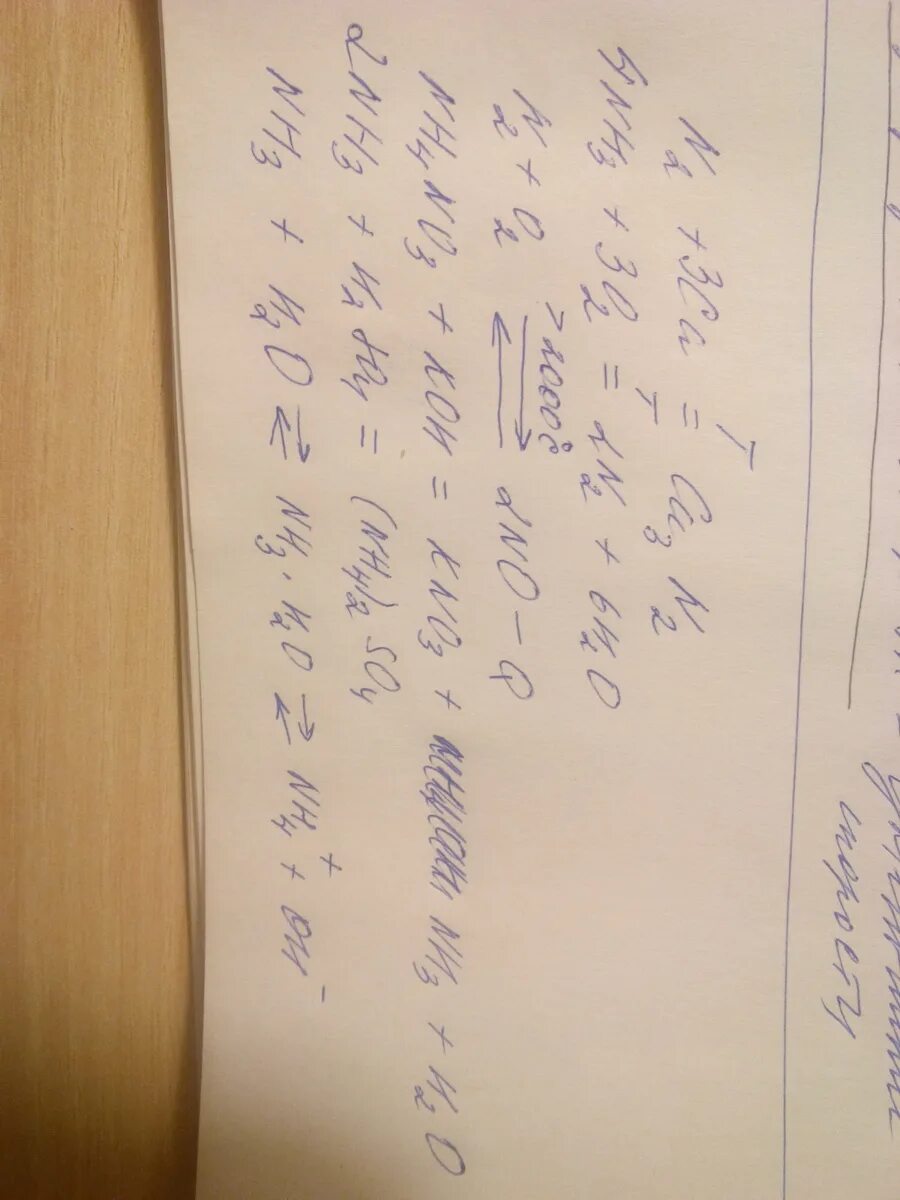 шорость
N₂ + 3Ca =ᵀ Ca₃N₂
4NH₃ + 3O₂ =ᵀ 2N₂ + 6H₂O
N₂ + O₂ ⇄ 2NO - Q
>2000°C
NH₄NO₃ + KOH = KNO₃ + NH₃ + H₂O
2NH₃ + H₂SO₄ = (NH₄)₂SO₄
NH₃ + H₂O ⇄ NH₃·H₂O ⇄ NH₄⁺ + OH⁻